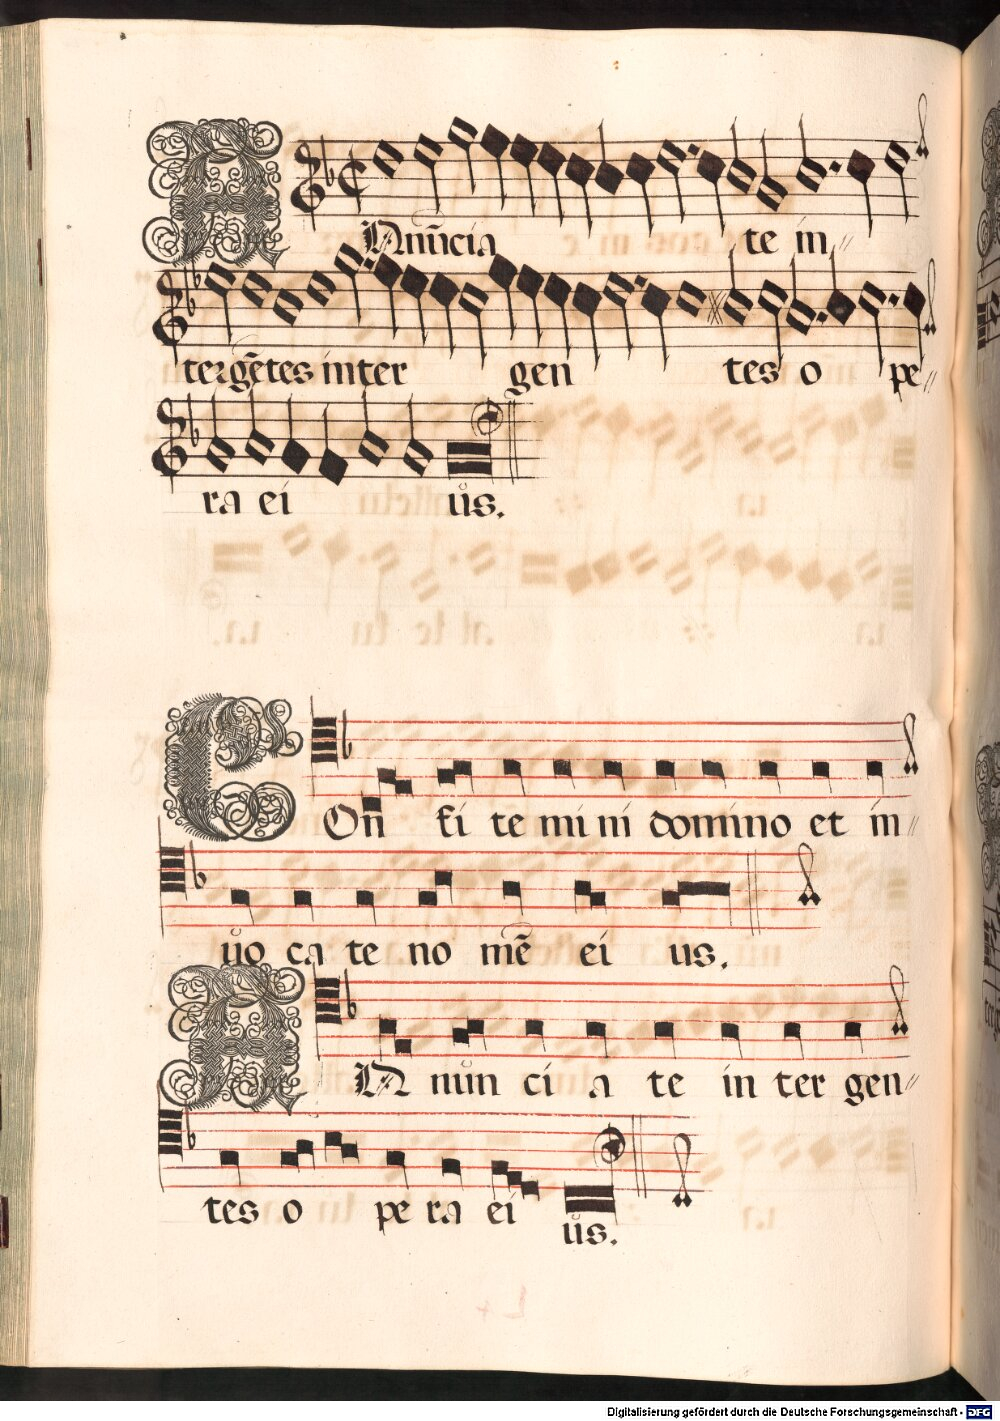 A Nnũcia te in
ter gẽtes inter gen tes o pe
ra ei us.
C On fi te mi ni domino et in
uo ca te no mẽ ei us.
A N nun ci a te in ter gen
tes o pe ra ei us.
Digitalisierung gefördert durch die Deutsche Forschungsgemeinschaft - DFG